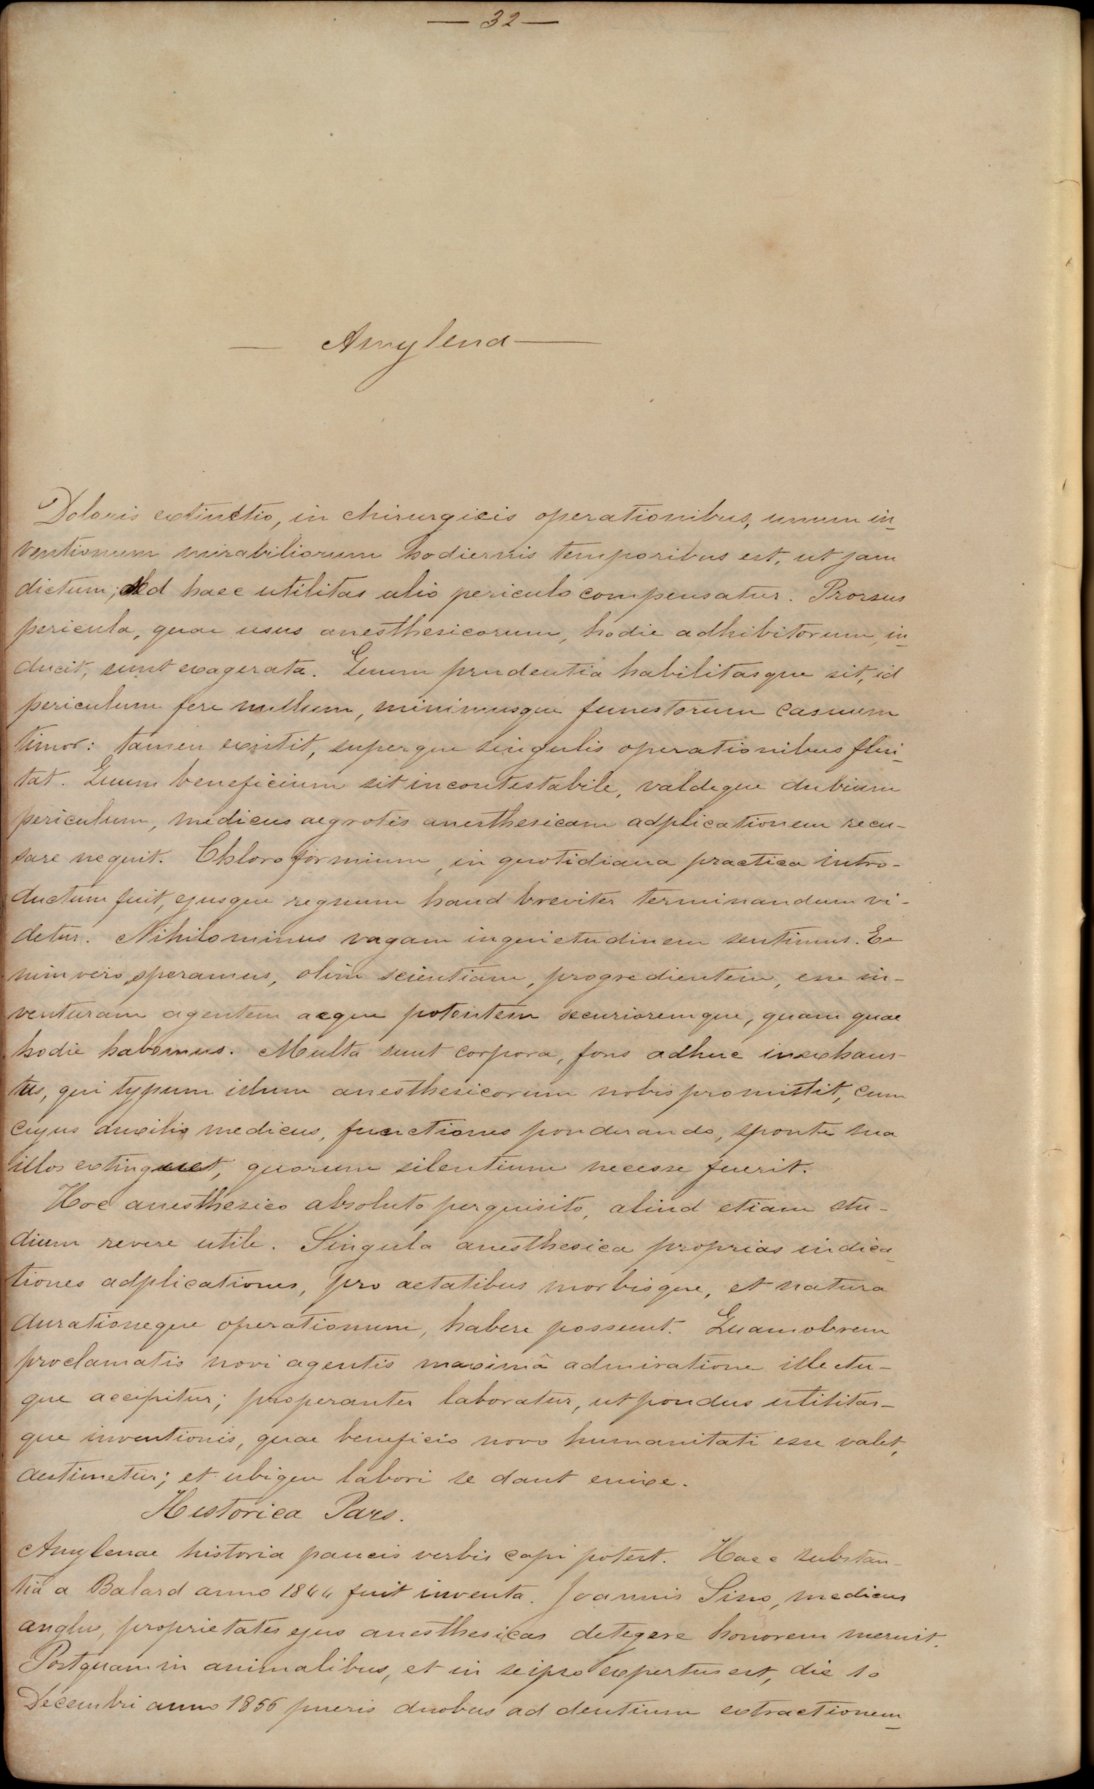 — 32 —
— Amylena —
Doloris extinctio, in chirurgicis operationibus, unum in_
ventionum mirabiliorum hodiernis temporibus est, ut jam
dictum; sed haec utilitas alio periculo compensatur. Prorsus
pericula, quae usus anesthesicorum, hodie adhibitorum, in_
ducit, sunt exagerata. Quum prudentia habilitasque sit, id
periculum fere nullum, minimusque funestorum casuum
timor: tamen existit, superque singulis operationibus flui_
tat. Quum beneficium sit incontestabile, valdeque dubium
periculum, medicus aegrotis anesthesicam adplicationem recu-
sare nequit. Chloroformium, in quotidiana practica intro-
ductum fuit, ejusque regnum haud breviter terminandum vi-
detur. Nihilominus vagam inquietudinem sentimus. Ee
nim vero speramus, olim scientiam, progredientem, esse in-
venturam agentem aeque potentem securioremque, quam quae
hodie habemus. Multa sunt corpora, fons adhuc inexhaus-
tus, qui typum illum anesthesicorum nobis promittit, cum
cujus auxilio medicus, functiones ponderando, sponte sua
illos extinguet, quorum silentium necesse fuerit.
Hoc anesthesico absoluto perquisito, aliud etiam stu-
dium revere utile. Singula anesthesica proprias indica_
tiones adplicationes, pro aetatibus morbisque, et natura
durationeque operationum, habere possunt. Quamobrem
proclamatio novi agentis maximâ admiratione
que accipitur; properanter laboratur, ut pondus utilitas-
que inventionis, quae beneficio novo humanitati esse valet,
aestimetur; et ubique labori se dant enixe.
Historica Pars.
Amylenae historia paucis verbis capi potest. Haec substan-
tia a Balard anno 1844 fuit inventa. Joannis Sino, medicus
anglus, proprietates ejus anesthesicas detegere honorem meruit.
Postquam in animalibus, et in seipso expertus est, die 10
Decembri anno 1856 pueris duobus ad dentium extractionem_